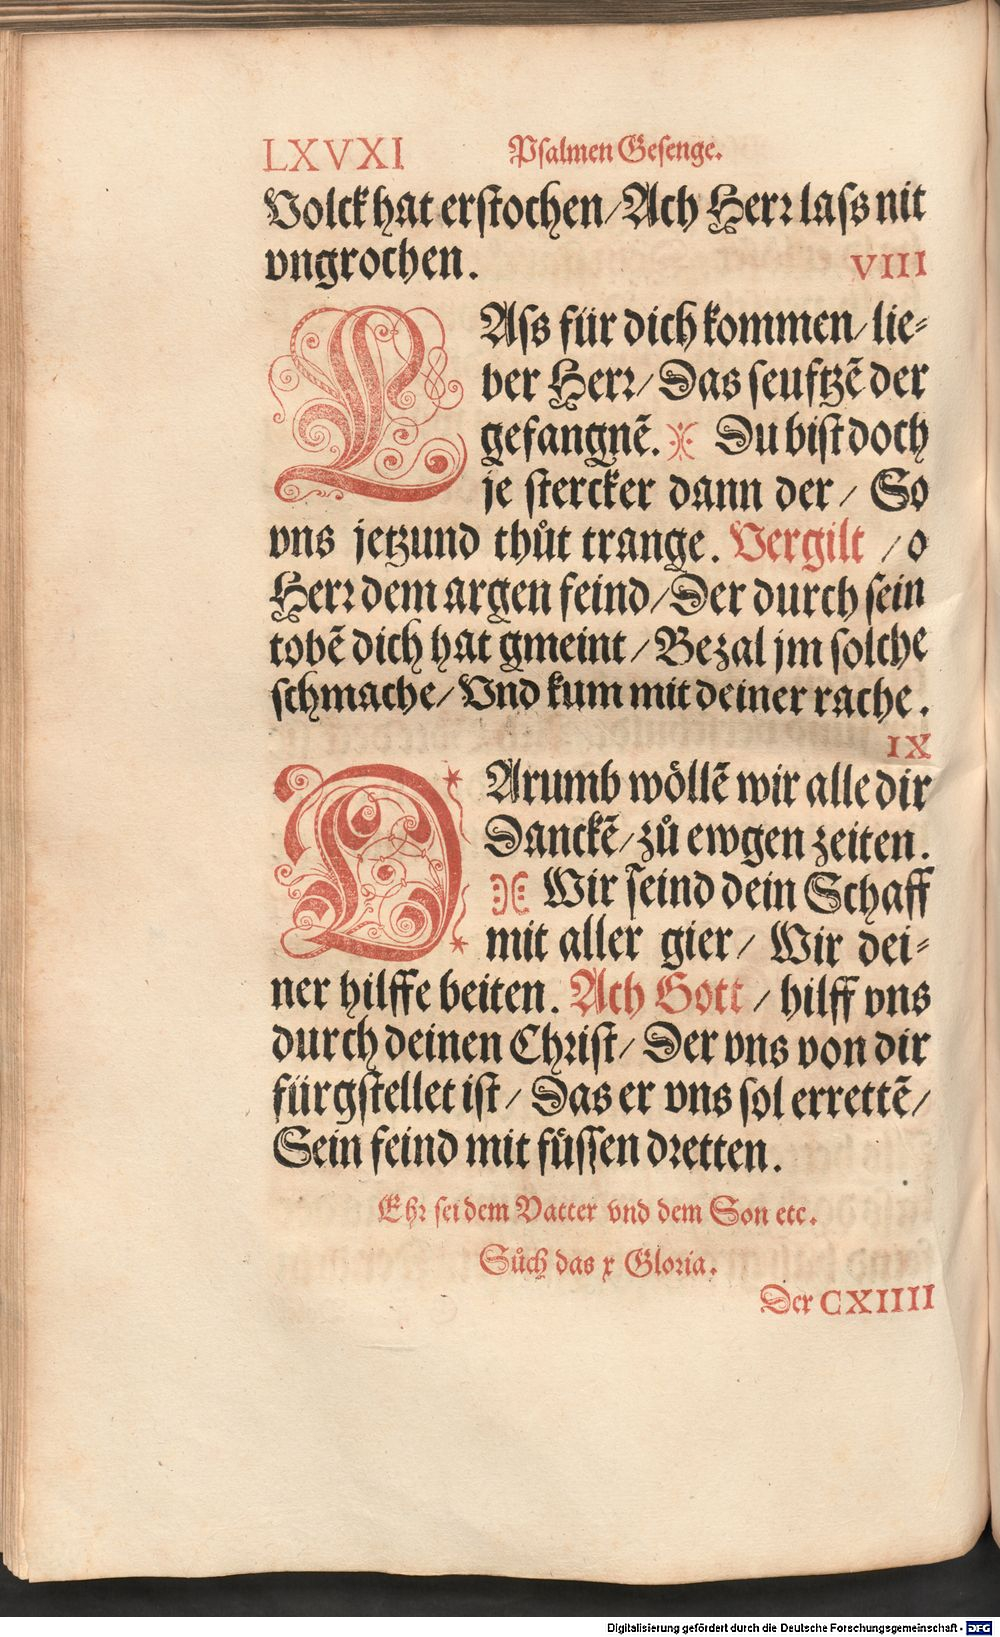 LXVXI Psalmen Gesenge.
Volck hat erstochen / Ach Herr lass nit
vngrochen. VIII
LAss für dich kommen / lie=
ber Herr / Das seufftzẽ der
gefangnẽ. Du bist doch
je stercker dann der / So
vns jetzund thůt trange. Vergilt / o
Herr dem argen feind / Der durch sein
tobẽ dich hat gmeint / Bezal jm solche
schmache / Vnd kum mit deiner rache.
IX
DArumb wöllẽ wir alle dir
Danckẽ / zů ewgen zeiten.
Wir seind dein Schaff
mit aller gier / Wir dei=
ner hilffe beiten. Ach Gott / hilff vns
durch deinen Christ / Der vns von dir
fürgstellet ist / Das er vns sol errettẽ /
Sein feind mit füssen dretten.
Ehr sei dem Vatter vnd dem Son etc.
Sůch das x Gloria.
Der CXIIII
Digitalisierung gefördert durch die Deutsche Forschungsgemeinschaft - DFG